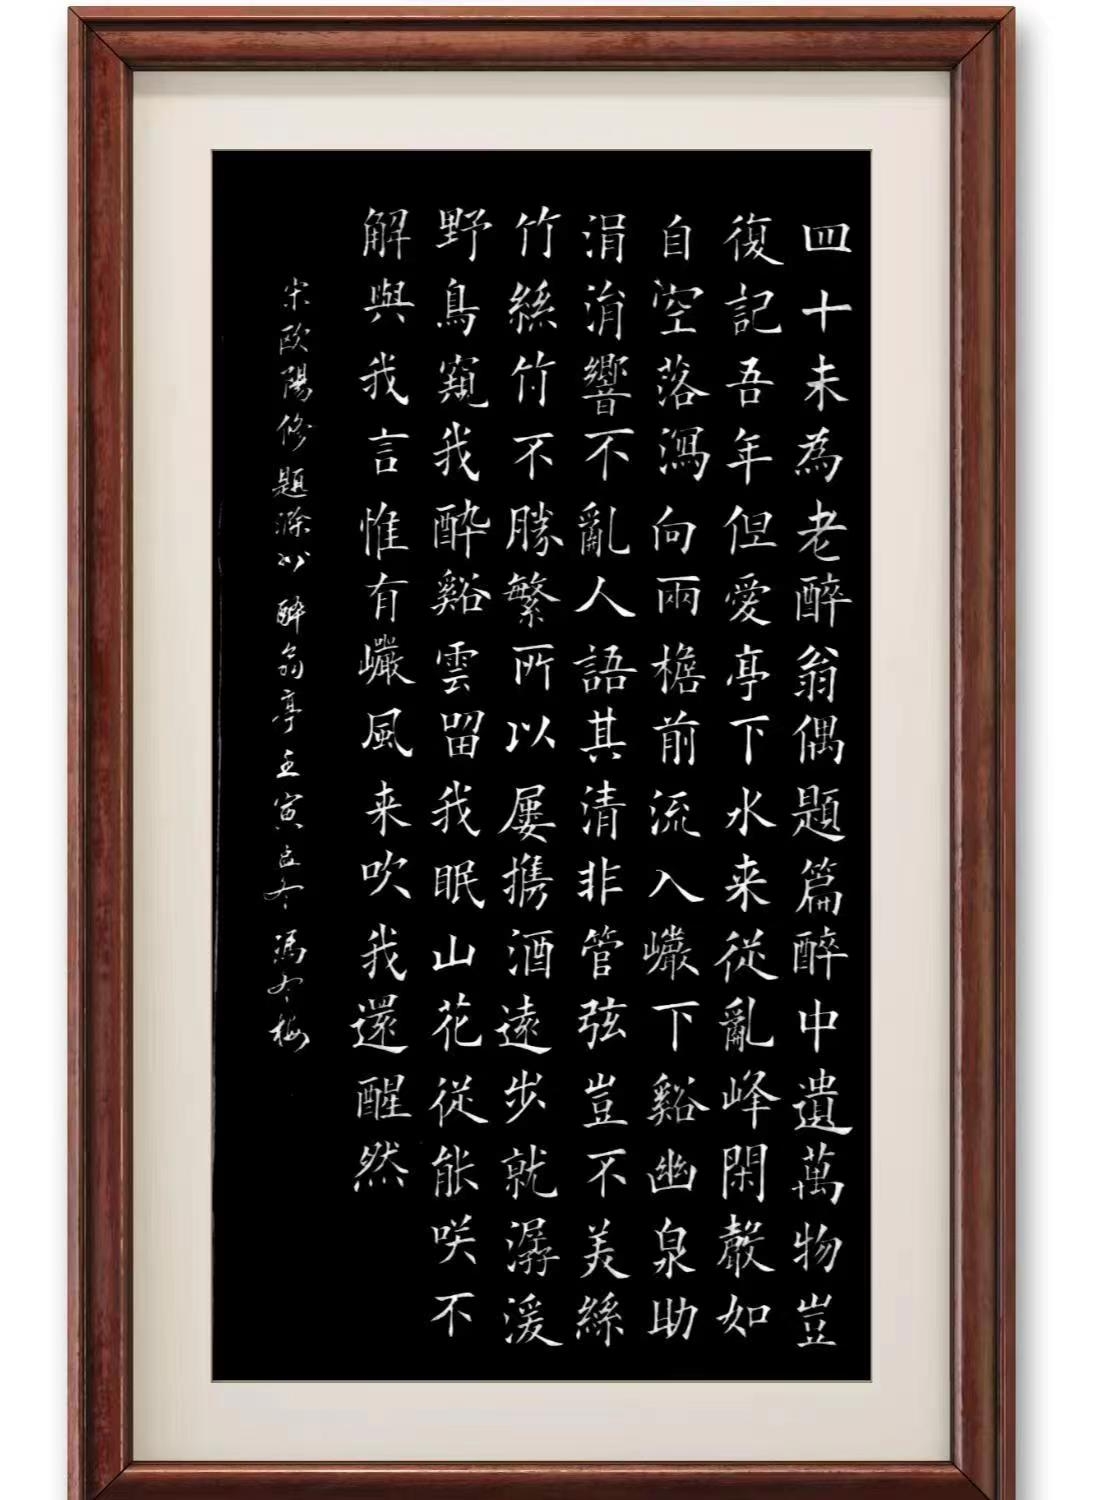 四十未為老醉翁偶題篇醉中遺萬物豈
復記吾年但愛亭下水来從亂峰閑聲如
自空落瀉向兩檐前流入巗下谿幽泉助
涓涓響不亂人語其清非管弦豈不美絲
竹絲竹不勝繁所以屢携酒遠步就潺湲
野鳥窺我醉谿雲留我眠山花從能咲不
解與我言惟有巗風来吹我還醒然
宋歐陽修題滁州醉翁亭壬寅立冬馮冬梅